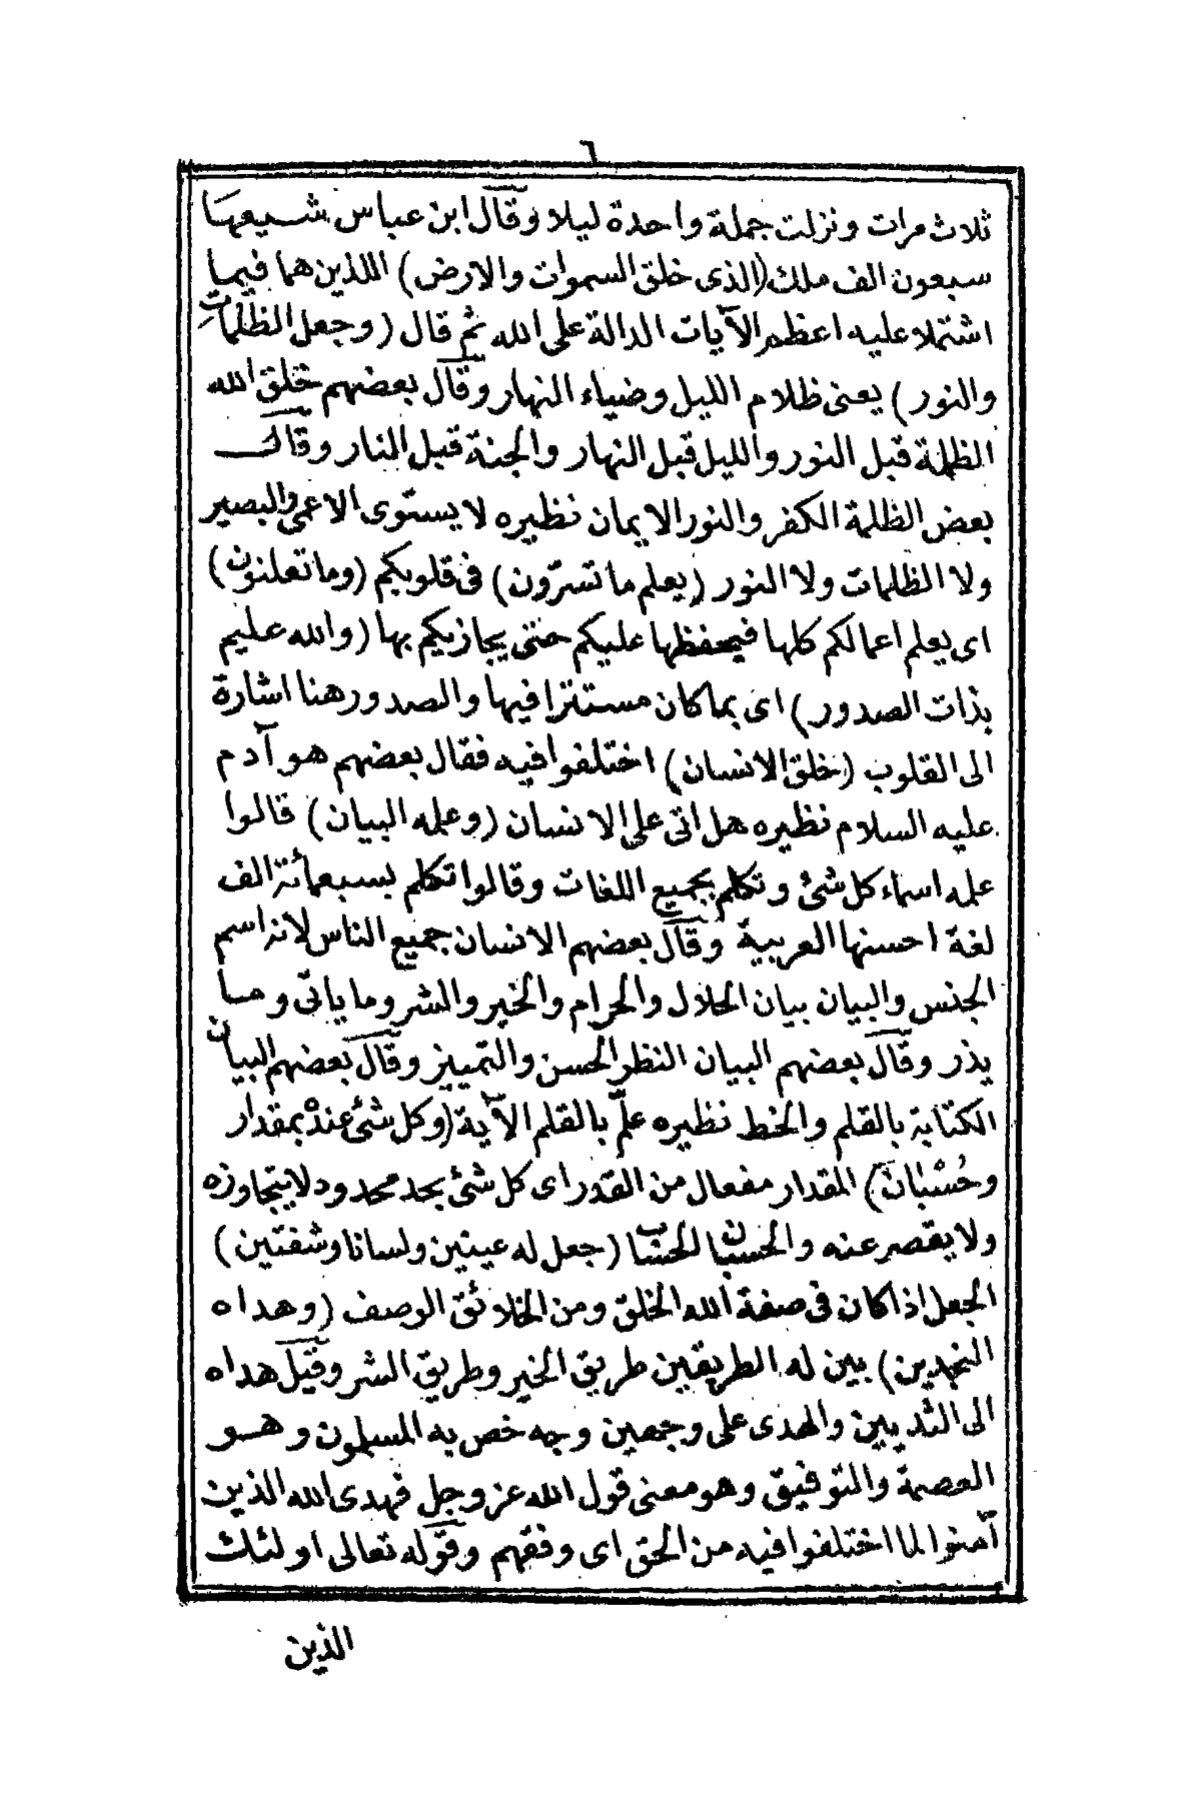 ٦
ثلاث مرات ونزلت جملة واحدة ليلا وقال ابن عباس شيعها
سبعون الف ملك (الذى خلق السموات والارض) اللذين هما فيما
اشتملا عليه اعظم الآيات الدالة على الله ثم قال (وجعل الظلمات
والنور) يعنى ظلام الليل وضياء النهار وقال بعضهم خلق الله
الظلمة قبل النور والليل قبل النهار والجنة قبل النار وقال
بعض الظلمة الكفر والنور الايمان نظيره لا يستوى الاعمى والبصير
ولا الظلمات ولا النور (يعلم ما تسرّون) فى قلوبكم (وما تعلنون)
اى يعلم اعمالكم كلها فيحفظها عليكم حتى يجازيكم بها (والله عليم
بذات الصدور) اى بما كان مستترا فيها والصدور هنا اشارة
الى القلوب (خلق الانسان) اختلفوا فيه فقال بعضهم هو آدم
عليه السلام نظيره هل اتى على الانسان (وعلمه البيان) قالوا
علمه اسماء كل شئ وتكلم بجميع اللغات وقالوا تكلم بسبعمائة الف
لغة احسنها العربية وقال بعضهم الانسان جميع الناس لانه اسم
الجنس والبيان بيان الحلال والحرام والخير والشر وما ياتى وما
يذر وقال بعضهم البيان النظر الحسن والتمييز وقال بعضهم البيان
الكتابة بالقلم والخط نظيره علّم بالقلم الآية (وكل شئ عنده بمقدار
وحُسْبَانَ) المقدار مفعال من القدر اى كل شئ بحد محدود لا يتجاوزه
ولا يقصر عنه والحسبان الحساب (جعل له عينين ولسانا وشفتين)
الجعل اذا كان فى صفة الله الخلق ومن الخلائق الوصف (وهداه
النجدين) بين له الطريقين طريق الخير وطريق الشر وقيل هداه
الى الثديين والهدى على وجهين وجه خص به المسلمون وهو
العصمة والتوفيق وهو معنى قول الله عز وجل فهدى الله الذين
آمنوا لما اختلفوا فيه من الحق اى وفقهم وقوله تعالى اولئك
الذين